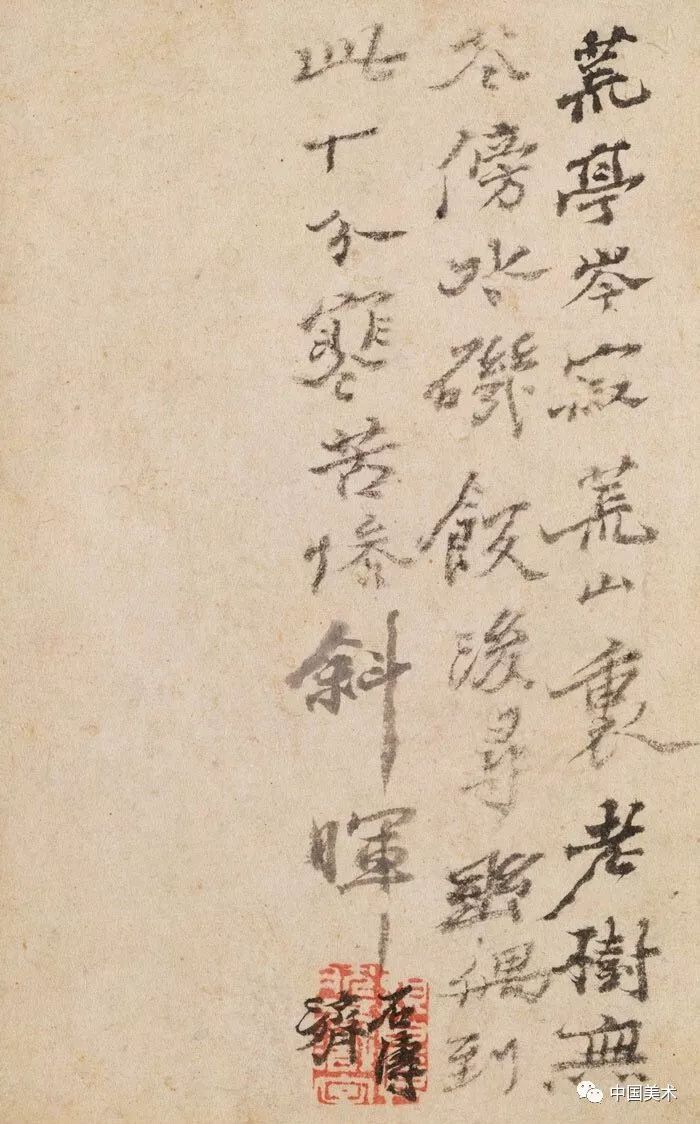 荒亭岑寂荒山裏老樹無
花傍水磯飯後尋幽偶到
此十分寒苦慘斜暉
石濤
濟
中国美术